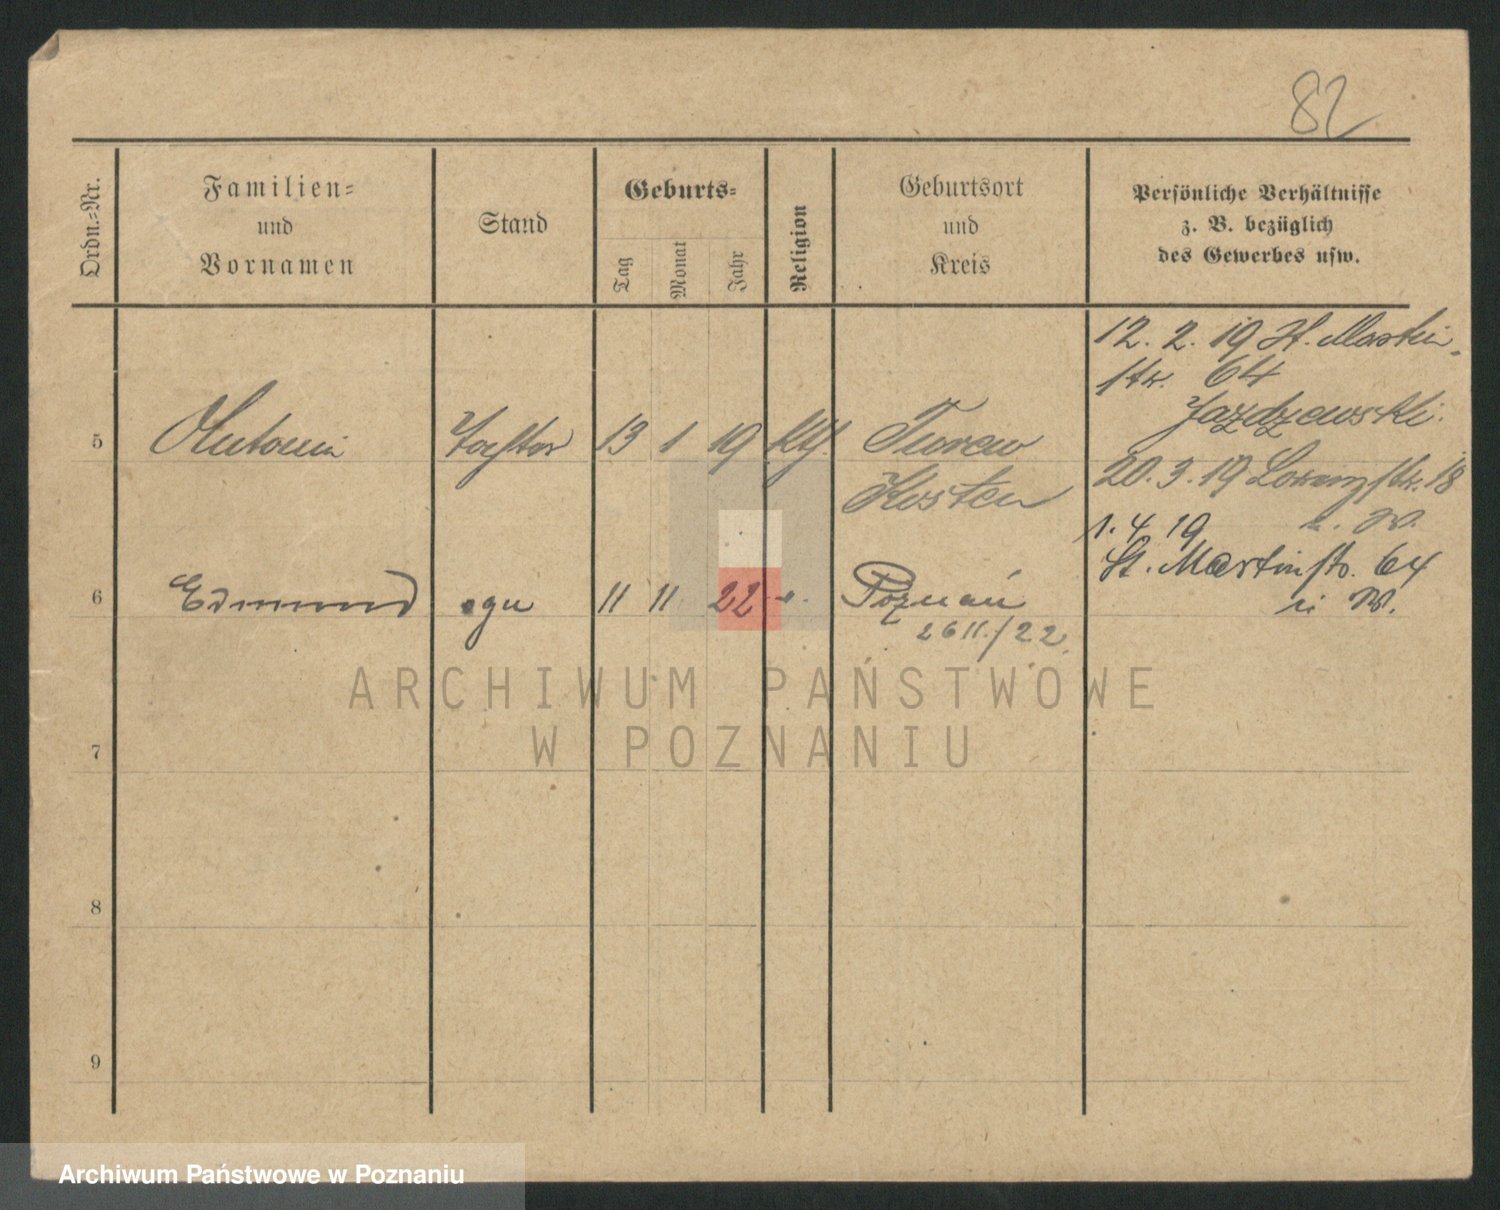 82
Ordn.-Nr.
Familien-
und
Vornamen
Stand
Geburts-
Tag
Monat
Jahr
Religion
Geburtsort
und
Kreis
Persönliche Verhältnisse
z. B. bezüglich
des Gewerbes usw.
12. 2. 19 St. Martin-
str. 64
Jazdzewski.
5 Antonia Tochter 13 1 19 kth. Turew
Kosten
20. 3. 19 Lorenzstr. 18
u. W.
1. 4. 19
St. Martinstr. 64
u W.
6 Edmund syn 11 11 22 Poznań
26 11./22.
7
8
9
ARCHIWUM PAŃSTWOWE
W POZNANIU
Archiwum Państwowe w Poznaniu